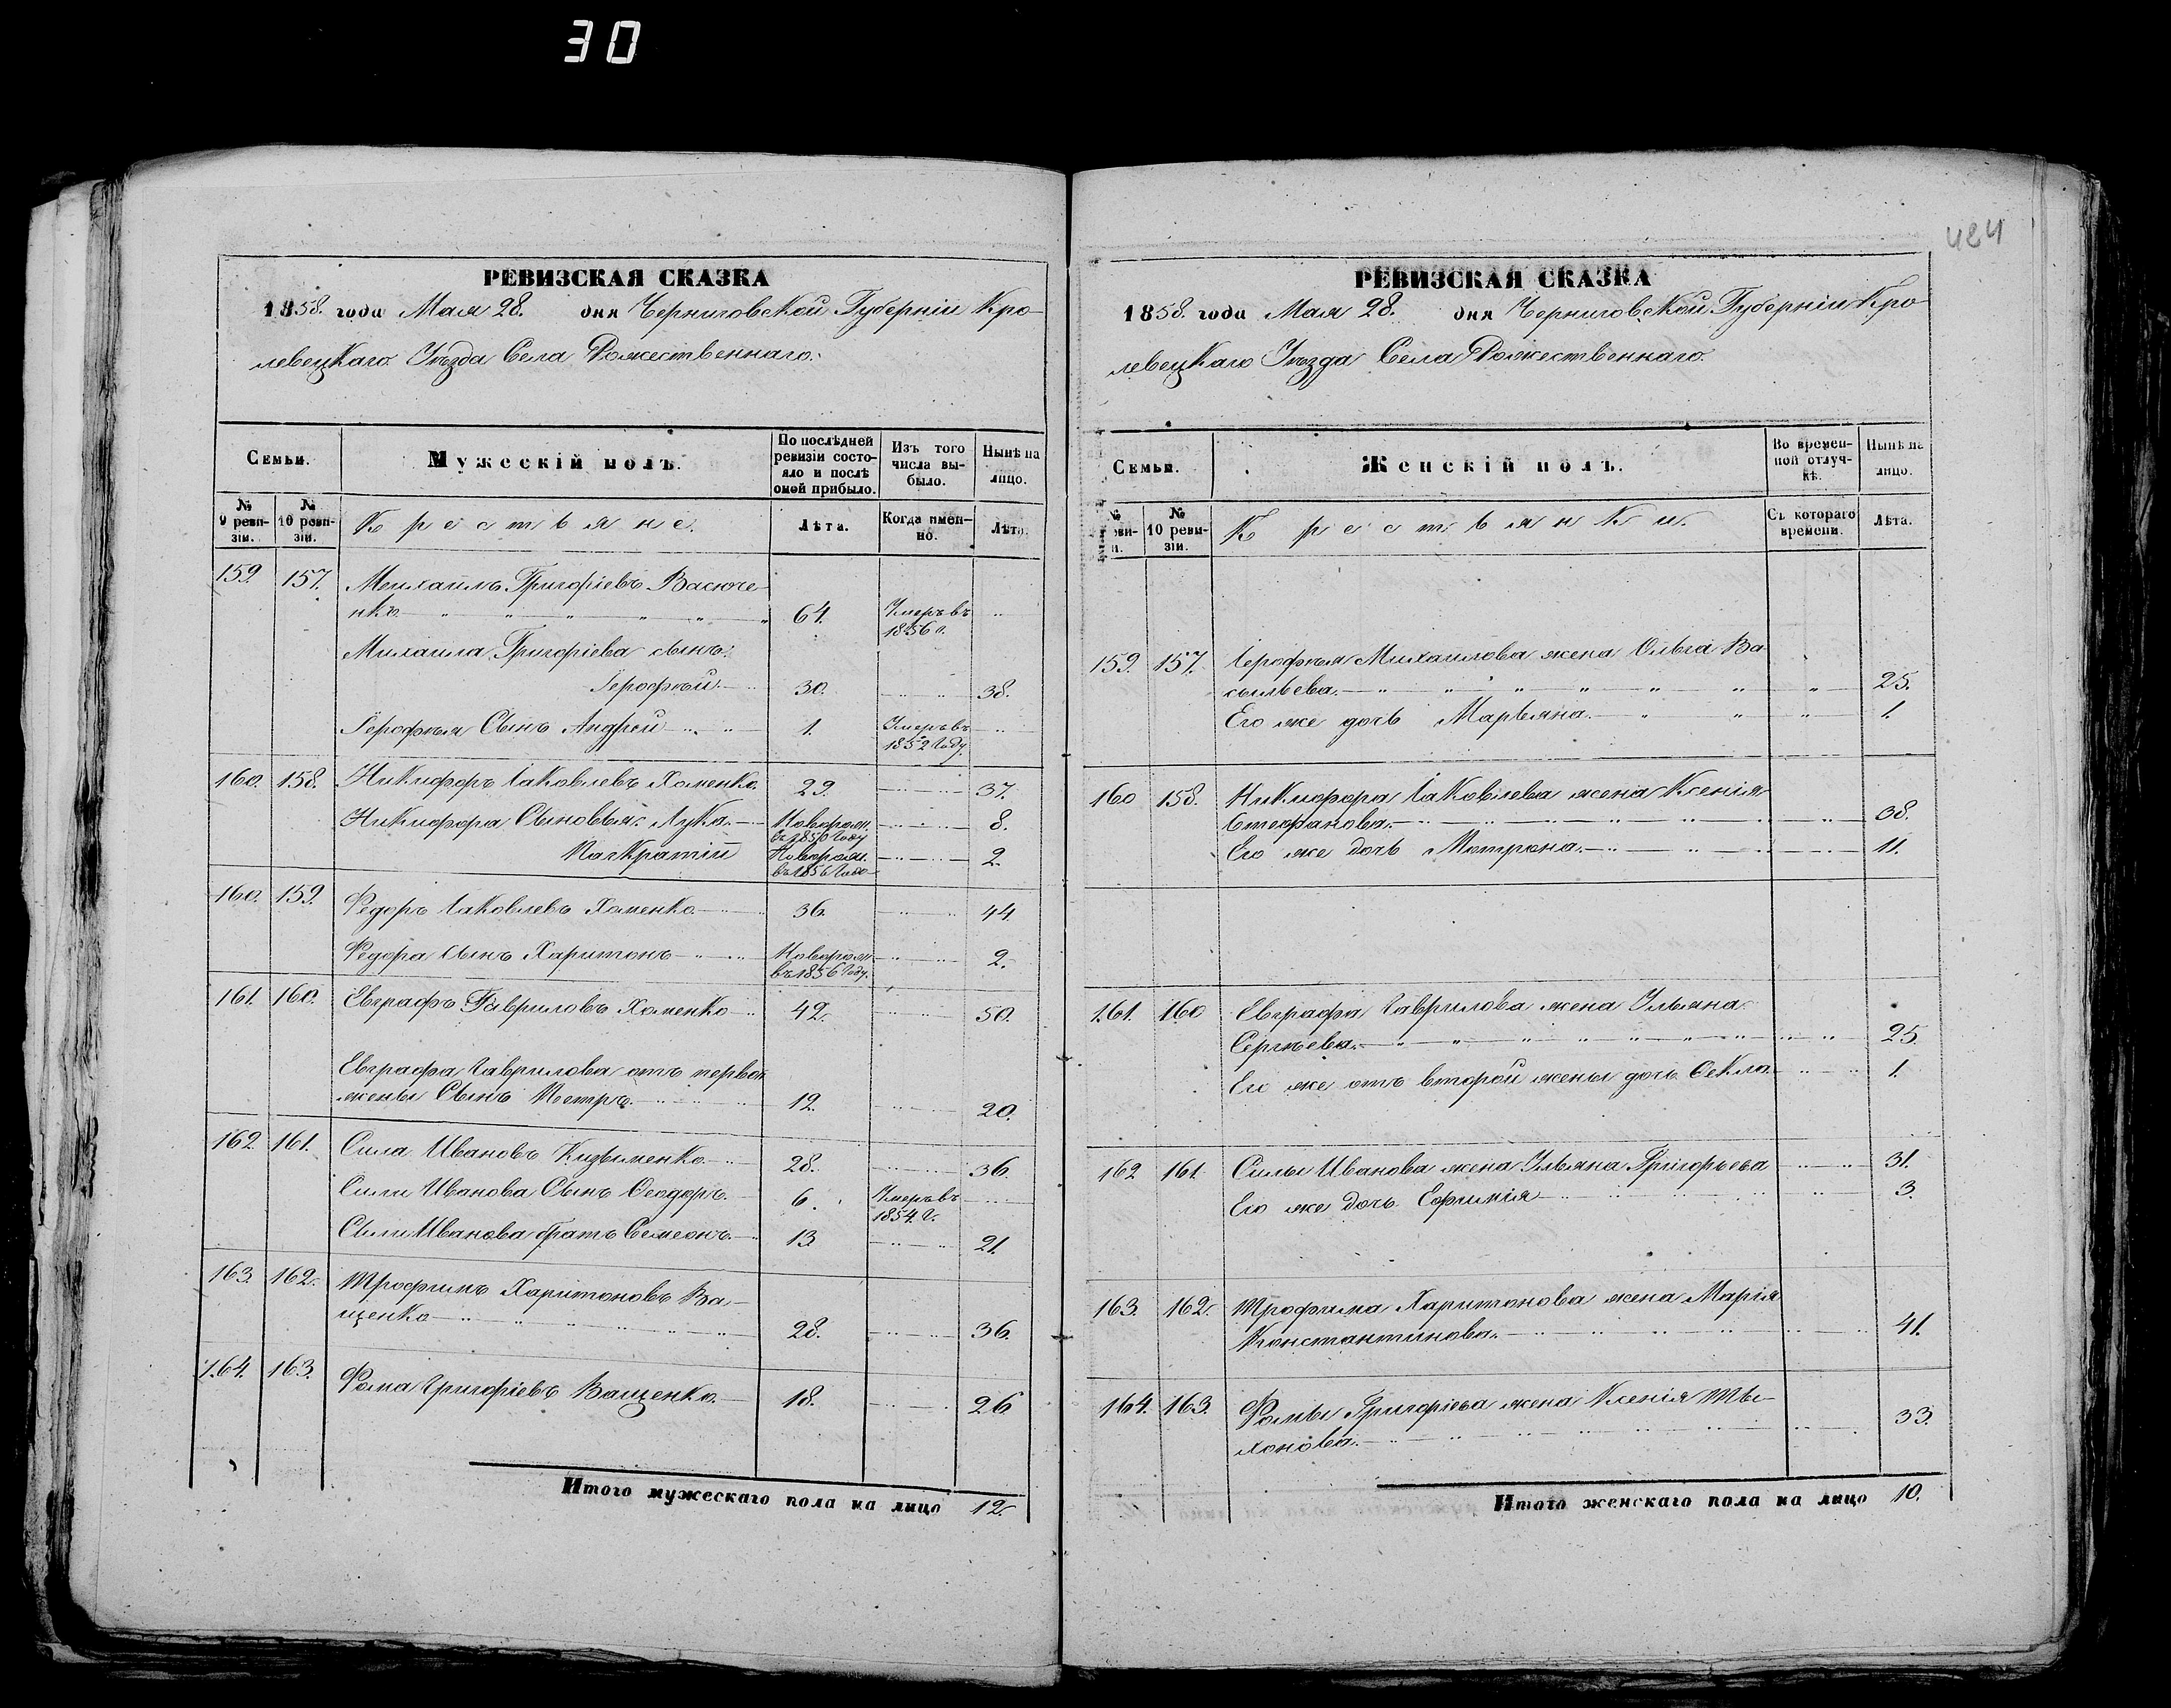 30
424
РЕВИЗСКАЯ СКАЗКА
1858. года Мая 28. дня Черниговской Губерніи Кро-
левецкаго Уѣзда Села Рожественнаго.
Семьи.
Мужескій полъ.
По послѣдней ревизіи состояло и послѣ оной прибыло.
Изъ того числа выбыло.
Нынѣ на лицо.
№ 9 ревизіи.
№ 10 ревизіи.
Крестьяне.
Лѣта.
Когда именно.
Лѣта.
159. 157. Михаилъ Григоріевъ Васюче-
нко 64. Умеръ въ 1856 г.
Михаила Григоріева сынъ
Герофѣй 30. 38.
Герофѣя Сынъ Андрей 1. Умеръ въ 1852 Году.
160. 158. Никифоръ Іаковлевъ Хоменко. 29. 37.
Никифора Сыновья: Лука. Новорож. въ 1850 Году 8.
Панкратій Новорож. въ 1856 Году 2.
160. 159. Федоръ Іаковлевъ Хоменко 36. 44
Федора Сынъ Харитонъ Новорож. въ 1856 Году. 2.
161. 160. Евграфъ Гавриловъ Хоменко 42. 50.
Евграфа Гаврилова отъ первой
жены Сынъ Петръ. 12. 20.
162. 161. Сила Ивановъ Кизыменко 28. 36.
Силы Иванова Сынъ Феодоръ. 6. Умеръ въ 1854 г.
Силы Иванова братъ Семеонъ. 13. 21.
163. 162. Трофимъ Харитоновъ Ва-
щенко 28. 36.
164. 163. Фома Григоріевъ Ващенко. 18. 26.
Итого мужескаго пола на лицо 12.
РЕВИЗСКАЯ СКАЗКА
1858. года Мая 28. дня Черниговской Губерніи Кро
левецкаго Уѣзда Села Рожественнаго.
Семьи.
Женскій полъ.
Во временной отлучкѣ.
Нынѣ на лицо.
№ 10 ревизіи.
Крестьянки.
Съ котораго времени.
Лѣта.
159. 157. Герофѣя Михаилова жена Ольга Ва
сильева. 25.
Его же дочь Марьяна. 1.
160 158. Никифора Іаковлева жена Ксенія
Стефанова. 38.
Его же дочь Мотрона. 11.
161. 160 Евграфа Гаврилова жена Ульяна
Сергѣева. 25.
Его же отъ второй жены дочь Фекла 1.
162 161. Силы Иванова жена Ульяна Григорьева 31.
Его же дочь Ефимія 3.
163. 162. Трофима Харитонова жена Марія
Константинова. 41.
164. 163. Фомы Григоріева жена Ксенія Ты-
хонова. 33.
Итого женскаго пола на лицо 10.